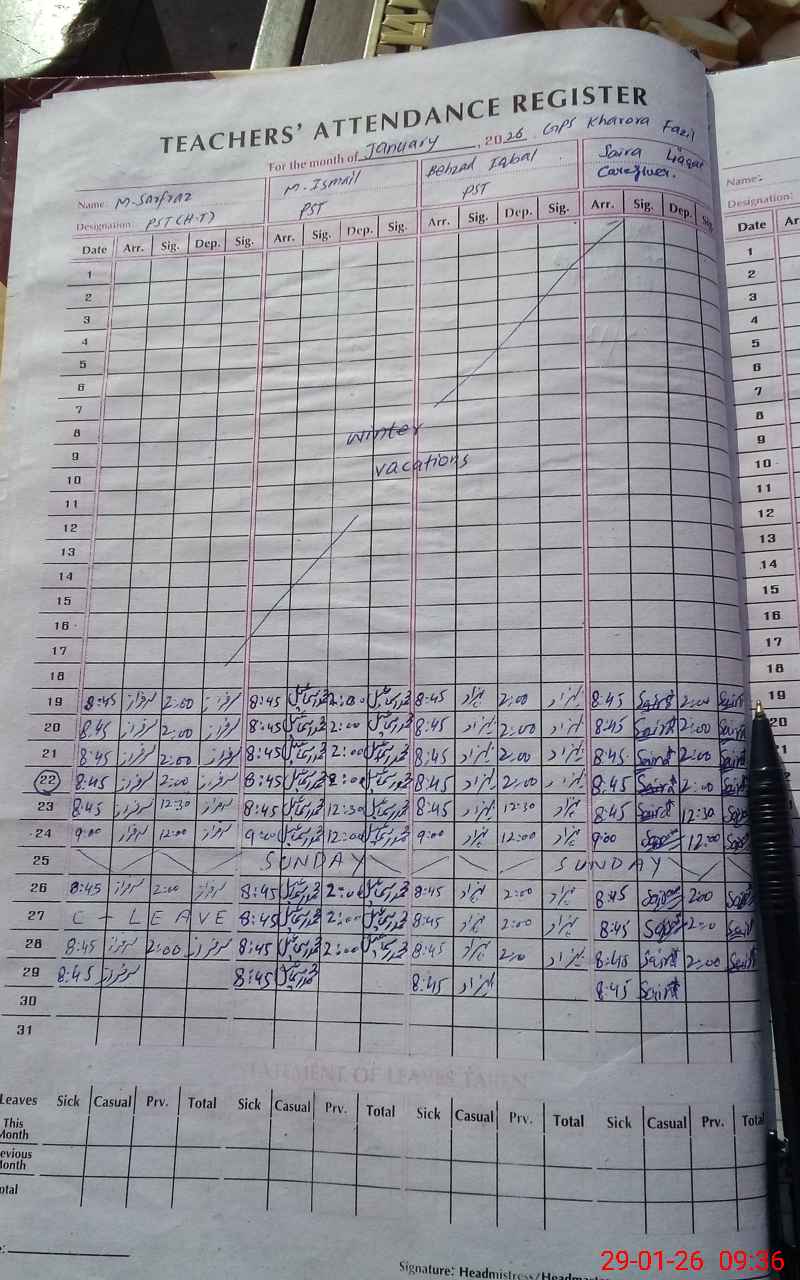 TEACHERS' ATTENDANCE REGISTER
For the month of January, 2026. GPS Kharora Fazil
Name: M. Sarfraz M. Ismail Behzad Iqbal Saira Liaqat Name:
Designation: PST(H.T) PST PST Caregiver. Designation:
Date Arr. Sig. Dep. Sig. Arr. Sig. Dep. Sig. Arr. Sig. Dep. Sig. Arr. Sig. Dep. Sig. Date
1 1
2 2
3 3
4 4
5 5
6 6
7 7
8 winter 8
9 vacations 9
10 10
11 11
12 12
13 13
14 14
15 15
16 16
17 17
18 18
19 8:45 سرفراز 2:00 سرفراز 8:45 محمد اسماعیل 2:00 محمد اسماعیل 8:45 بہزاد 2:00 بہزاد 8:45 Saira 2:00 Saira 19
20 8:45 سرفراز 2:00 سرفراز 8:45 محمد اسماعیل 2:00 محمد اسماعیل 8:45 بہزاد 2:00 بہزاد 8:45 Saira 2:00 Saira 20
21 8:45 سرفراز 2:00 سرفراز 8:45 محمد اسماعیل 2:00 محمد اسماعیل 8:45 بہزاد 2:00 بہزاد 8:45 Saira 2:00 Saira 21
22 8:45 سرفراز 2:00 سرفراز 8:45 محمد اسماعیل 2:00 محمد اسماعیل 8:45 بہزاد 2:00 بہزاد 8:45 Saira 2:00 Saira
23 8:45 سرفراز 12:30 سرفراز 8:45 محمد اسماعیل 12:30 محمد اسماعیل 8:45 بہزاد 12:30 بہزاد 8:45 Saira 12:30 Saira
24 9:00 سرفراز 12:00 سرفراز 9:00 محمد اسماعیل 12:00 محمد اسماعیل 9:00 بہزاد 12:00 بہزاد 9:00 Saira 12:00 Saira
25 SUNDAY SUNDAY
26 8:45 سرفراز 2:00 سرفراز 8:45 محمد اسماعیل 2:00 محمد اسماعیل 8:45 بہزاد 2:00 بہزاد 8:45 Saira 2:00 Saira
27 C - LEAVE 8:45 محمد اسماعیل 2:00 محمد اسماعیل 8:45 بہزاد 2:00 بہزاد 8:45 Saira 2:00 Saira
28 8:45 سرفراز 2:00 سرفراز 8:45 محمد اسماعیل 2:00 محمد اسماعیل 8:45 بہزاد 2:00 بہزاد 8:45 Saira 2:00 Saira
29 8:45 سرفراز 8:45 محمد اسماعیل 8:45 بہزاد 8:45 Saira
30
31
STATEMENT OF LEAVES TAKEN
Leaves Sick Casual Prv. Total Sick Casual Prv. Total Sick Casual Prv. Total Sick Casual Prv. Total
This
Month
evious
Month
otal
Signature: Headmistress/Headmaster
29-01-26 09:36